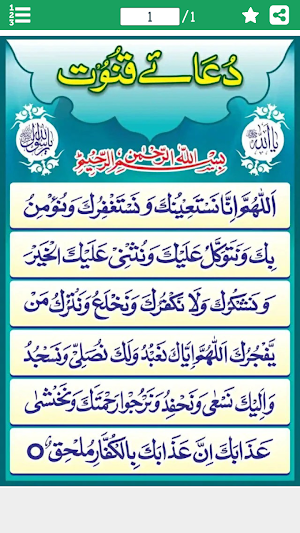 1 2 3
1 /1
دُعَائے قُنُوت
یااللہ
یارسول اللہ
بِسْمِ اللّٰهِ الرَّحْمٰنِ الرَّحِيْمِ
اَللّٰهُمَّ اِنَّا نَسْتَعِيْنُكَ وَنَسْتَغْفِرُكَ وَنُؤْمِنُ
بِكَ وَنَتَوَكَّلُ عَلَيْكَ وَنُثْنِىْ عَلَيْكَ الْخَيْرَ
وَنَشْكُرُكَ وَلَا نَكْفُرُكَ وَنَخْلَعُ وَنَتْرُكُ مَنْ
يَّفْجُرُكَ اَللّٰهُمَّ اِيَّاكَ نَعْبُدُ وَلَكَ نُصَلِّىْ وَنَسْجُدُ
وَاِلَيْكَ نَسْعٰى وَنَحْفِدُ وَنَرْجُوْا رَحْمَتَكَ وَنَخْشٰى
عَذَابَكَ اِنَّ عَذَابَكَ بِالْكُفَّارِ مُلْحِقٌ